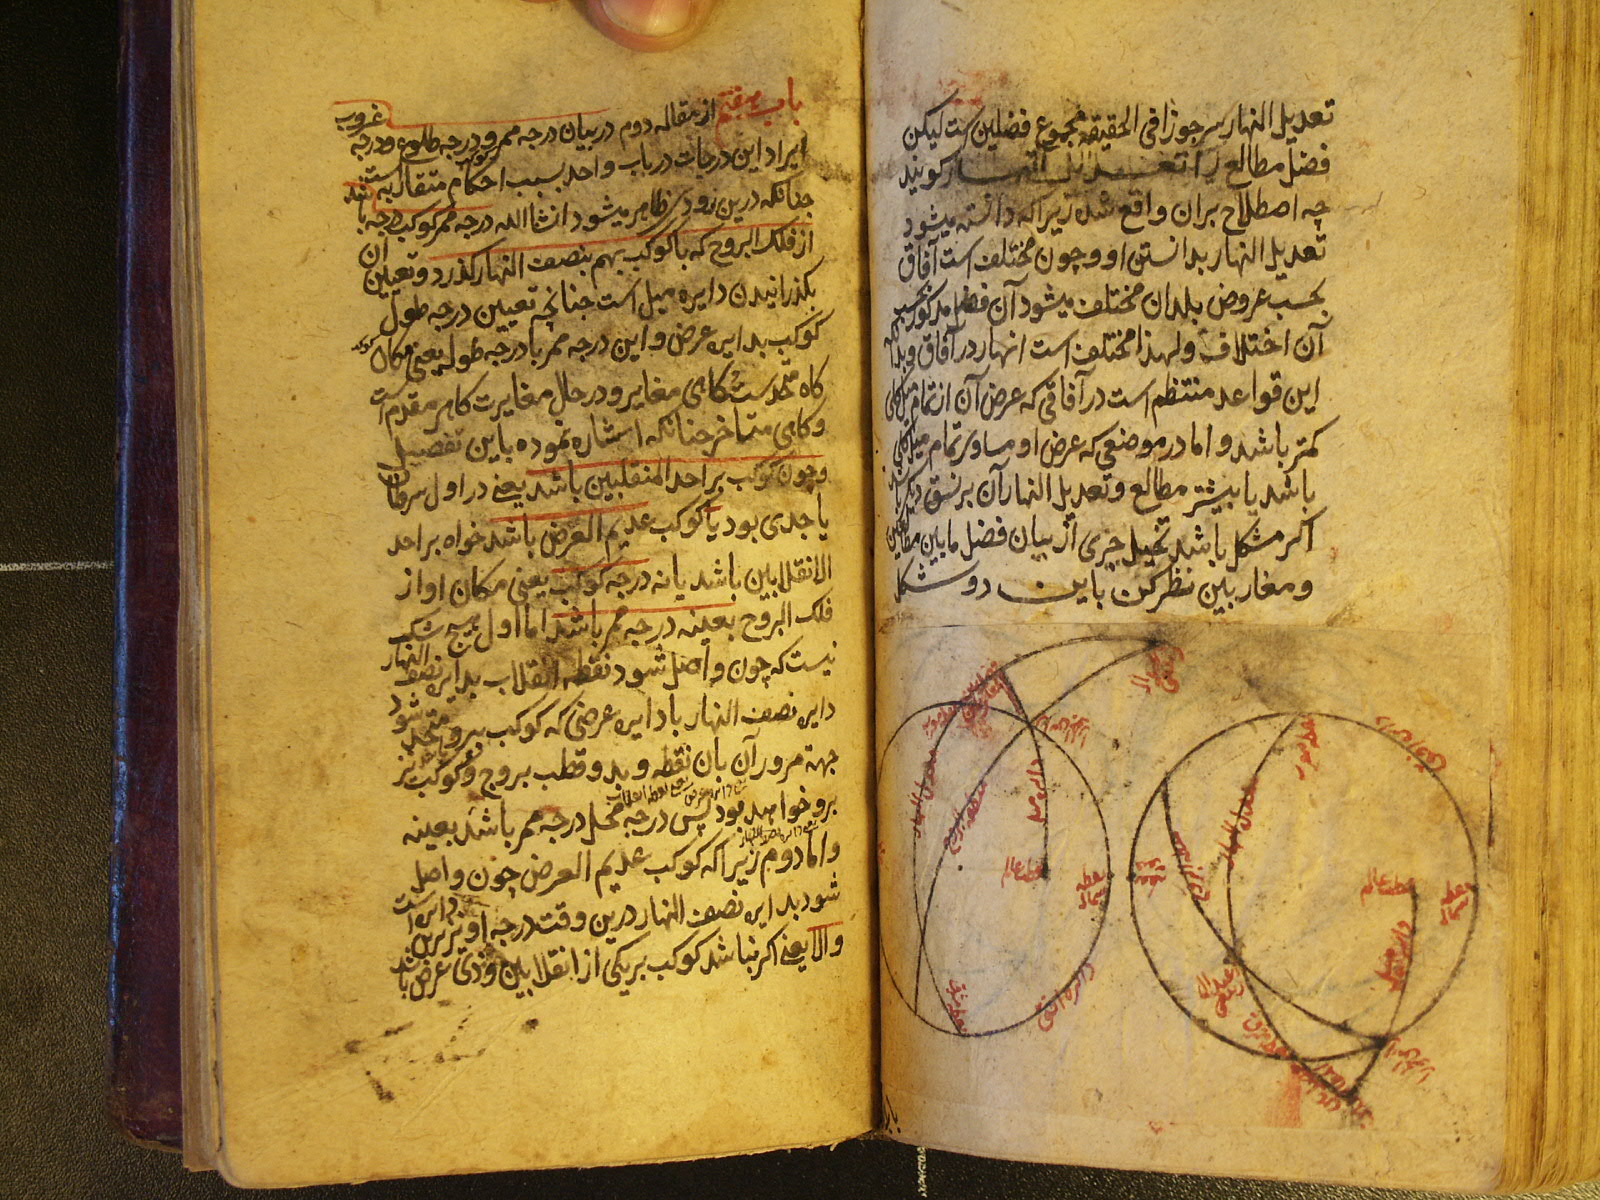 تعدیل النهار سر جوزا فی الحقیقه مجموع فضلین است لیکن
فضل مطالع را تعدیل النهار کویند
چه اصطلاح بران واقع شده زیرا که دانسته میشود
تعدیل النهار بدانستن او و چون مختلف است آفاق
بحسب عروض بلدان مختلف میشود آن فضل مذکور بحسب
آن اختلاف و لهذا مختلف است انهار در آفاق و بدانکه
این قواعد منتظم است در آفاقی که عرض آن از تمام میل کلی
کمتر باشد و اما در موضعی که عرض او مساوی تمام میل کلی
باشد یا بیشتر مطالع و تعدیل النهار آن بر نسق دیکر باشد
اکر مشکل باشد تخیل چیزی از بیان فضل مابین مطالعین
و مغاربین نظر کن باین دو شکل
معدل النهار
منطقة البروج
دایره میل
قطب عالم
نقطه شمال
دایره افق
نقطه مشرق
دایره افق
نقطه مغرب
معدل النهار
قطب عالم
نقطه شمال
دایره میل
نقطه جنوب
باب هفتم از مقاله دوم در بیان درجه ممر و درجه طلوع و درجه غروب
ایراد این درجات در باب واحد بسبب احکام متقاربه است
چنانکه درین زودی ظاهر میشود انشا الله درجه ممر کوکب درجه باشد
از فلک البروج که با کوکب بهم بنصف النهار کذرد و تعیین آن
بکذرانیدن دایره میل است چنانچه تعیین درجه طول
کوکب بدایره عرض و این درجه ممر با درجه طول یعنی مکان کوکب
کاه متحدست کاهی مغایر و در حال مغایرت کاهی مقدم است
و کاهی متاخر چنانکه اشاره نموده باین تفصیل
و چون کوکب بر احد المنقلبین باشد یعنی در اول سرطان
یا جدی بود یا کوکب عدیم العرض باشد خواه بر احد
الانقلابین باشد یا نه درجه کوکب یعنی مکان او از
فلک البروج بعینه درجه ممر باشد اما اول هیچ شک
نیست که چون واصل شود نقطه انقلاب بدایره نصف النهار
دایره نصف النهار با دایره عرضی که کوکب بروست متحد شود
جهة مرور آن بان نقطه و بدو قطب بروج و کوکب نیز
برو خواهد بود پس درجه محل درجه ممر باشد بعینه
و اما دوم زیرا که کوکب عدیم العرض چون واصل
شود بدایره نصف النهار درین وقت درجه او نیز برین دایره است
و الا یعنی اکر نباشد کوکب بر یکی از انقلابین و ذی عرض باشد